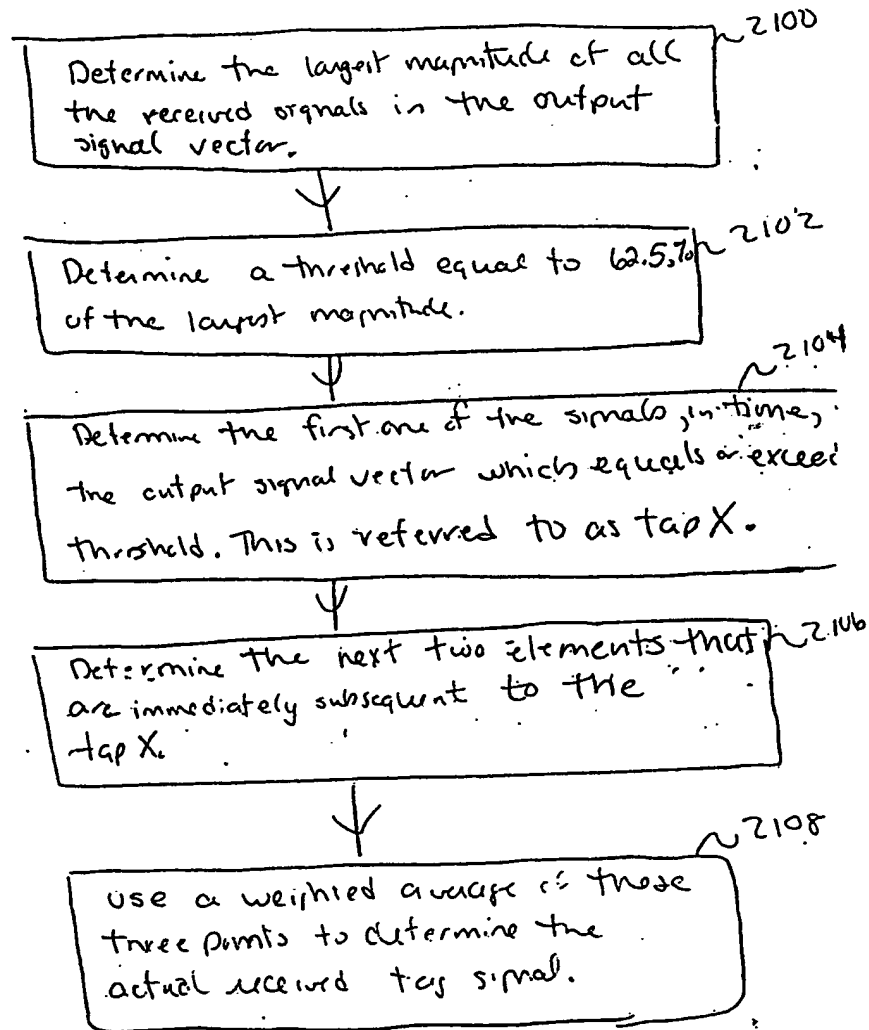 2100
Determine the largest magnitude of all
the received signals in the output
signal vector.
2102
Determine a threshold equal to 62.5%
of the largest magnitude.
2104
Determine the first one of the signals, in time,
the output signal vector which equals or exceed
threshold. This is referred to as tap X.
2106
Determine the next two elements that
are immediately subsequent to the
tap X.
2108
use a weighted average of those
three points to determine the
actual received tag signal.